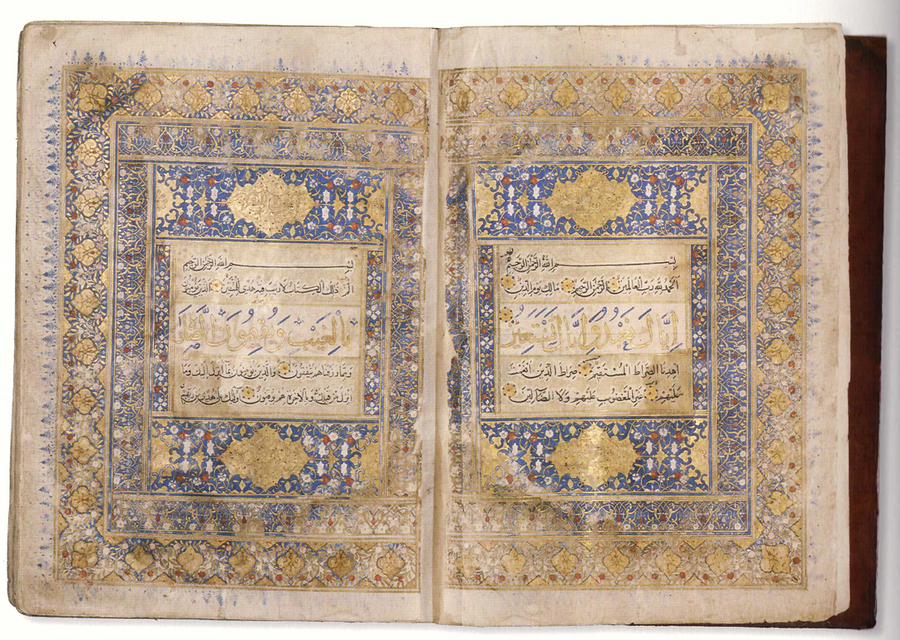 بسم الله الرحمن الرحيم
الحمد لله رب العالمين الرحمن الرحيم مالك يوم الدين
اياك نعبد واياك نستعين
اهدنا الصراط المستقيم صراط الذين انعمت
عليهم غير المغضوب عليهم ولا الضالين
بسم الله الرحمن الرحيم
الم ذلك الكتاب لا ريب فيه هدى للمتقين الذين يؤمنون
بالغيب ويقيمون الصلوة
ومما رزقناهم ينفقون والذين يؤمنون بما انزل اليك وما
انزل من قبلك وبالاخرة هم يوقنون اولئك على هدى من ربهم